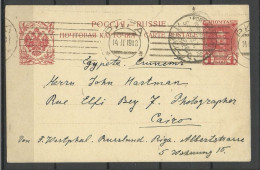 РОССІЯ. RUSSIE
ПОЧТОВАЯ КАРТОЧКА
14 II 1913
Herrn John Hartman
Rue Elfi Bey 7. Photographer
Cairo
Von F. Westphal. Russland. Riga. Albertstrasse
5 Wohnung 15.